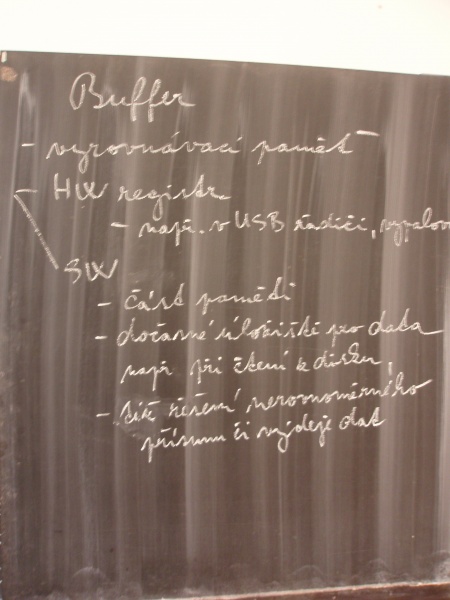 Buffer
- vyrovnávací paměť
- HW registr
- např. v USB řadiči, vypalov
SW
- část paměti
- dočasné úložiště pro data
např při čtení z disku,
- též řešení nerovnoměrného
přísunu či výdeje dat